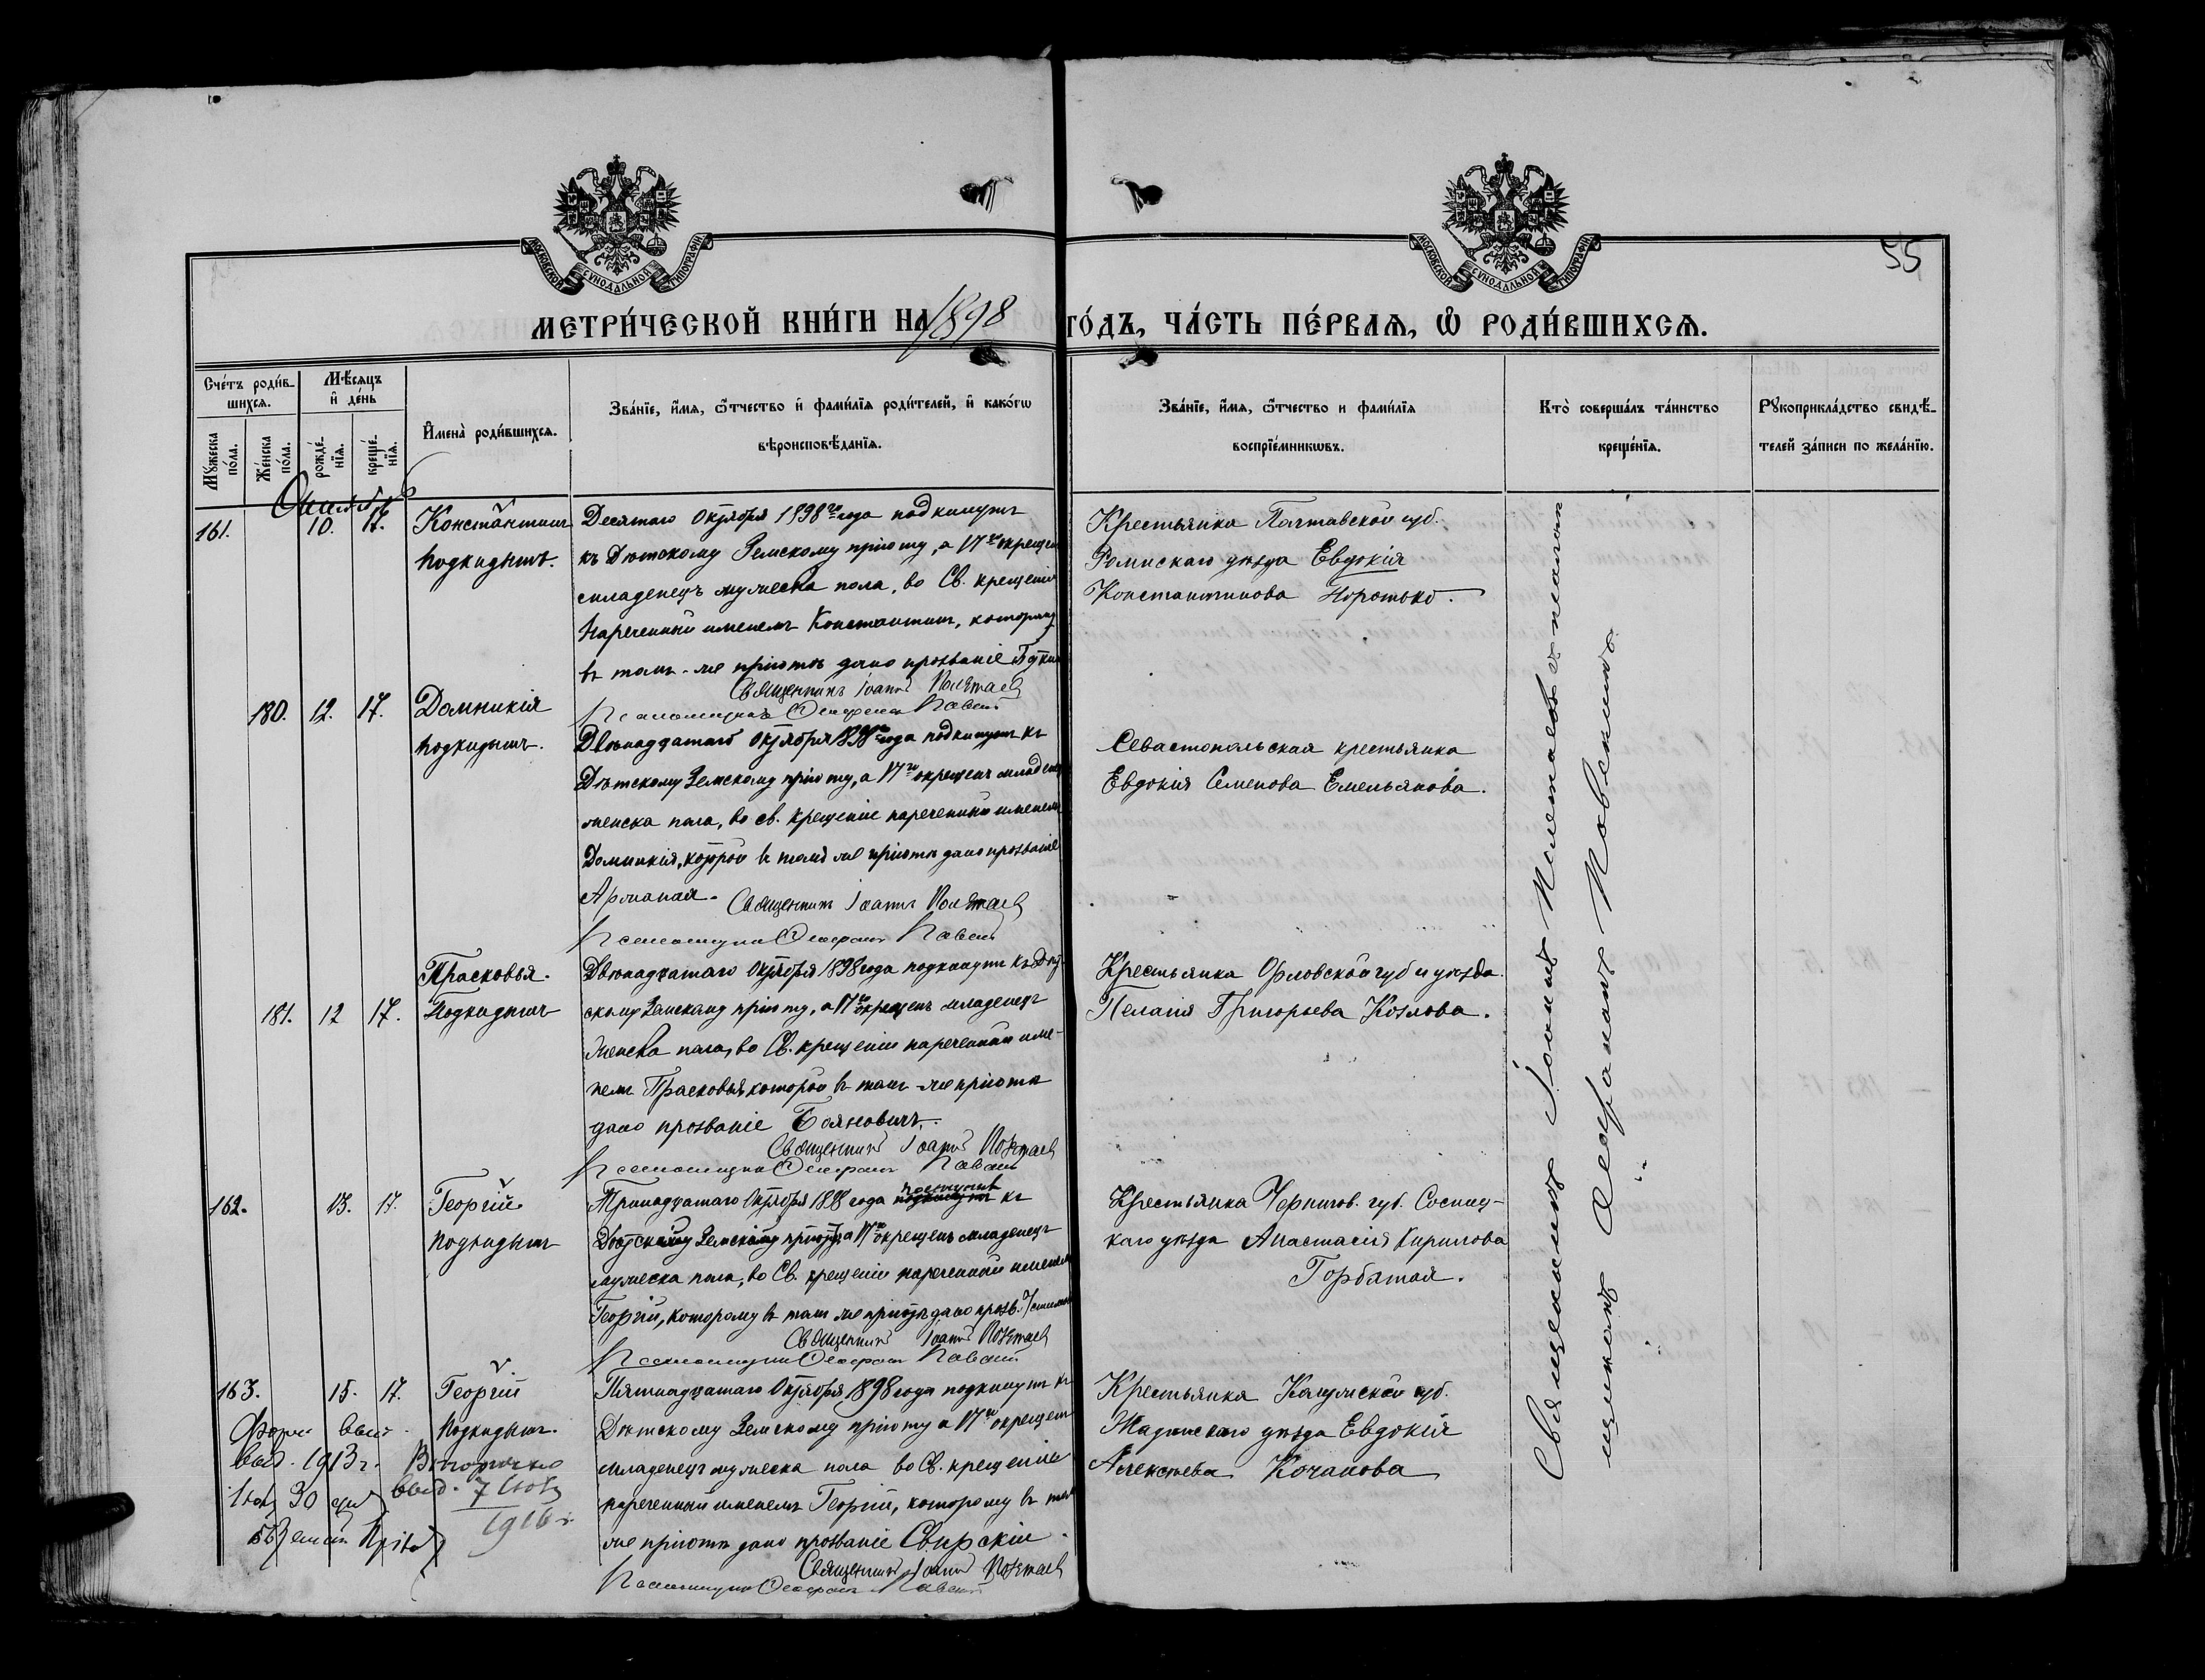 55
МОСКОВСКОЙ СѴНОДАЛЬНОЙ ТИПОГРАФІИ
МОСКОВСКОЙ СѴНОДАЛЬНОЙ ТИПОГРАФІИ
МЕТРИ́ЧЕСКОЙ КНИ́ГИ НА 1898 ГО́ДЪ, ЧА́СТЬ ПЕ́РВАЯ, Ѡ РОДИ́ВШИХСЯ.
Счетъ родив-
шихся.
Мужеска пола.
Женска пола.
Мѣсяцъ и день
рожде-
нія.
креще-
нія.
Имена родившихся.
Званіе, имя, отчество и фамилія родителей, и какого
вѣроисповѣданія.
Званіе, имя, отчество и фамилія
воспріемниковъ.
Кто совершалъ таинство
крещенія.
Рукоприкладство свидѣ-
телей записи по желанію.
Октябрь
161. 10. 17. Константинъ
подкидышъ.
Десятаго Октября 1898го года подкинутъ
къ Дѣтскому Земскому пріюту, а 17го окрещенъ
младенецъ мужеска пола, во Св. крещеніи
нареченный именемъ Константинъ, которому
въ томъ-же пріютѣ дано прозваніе
Священникъ Іоаннъ
Крестьянка Полтавской губ.
Роменскаго уѣзда Евдокія
Константинова Коротько.
180. 12. 17. Домникія
подкидышъ.
Двѣнадцатаго Октября 1898го года подкинутъ къ
Дѣтскому Земскому пріюту, а 17го окрещенъ младенецъ
женска пола, во св. крещеніи нареченный именемъ
Домникія, которой въ томъ же пріютѣ дано прозваніе
Священникъ Іоаннъ
Севастопольская крестьянка
Евдокія Семенова Емельянова.
181. 12 17. Прасковья.
Подкидышъ
Двѣнадцатаго Октября 1898 года подкинутъ къ Дѣт-
скому Земскому пріюту, а 17го окрещенъ младенецъ
женска пола, во Св. крещеніи нареченный име-
немъ Прасковья которой въ томъ-же пріютѣ
дано прозваніе Бояновичъ.
Священникъ Іоаннъ
Крестьянка Орловской губ и уѣзда.
Пелагія Григорьева Козлова.
162. 13. 17. Георгій
подкидышъ
Тринадцатаго Октября 1898 года поступивъ къ
Дѣтскому Земскому пріюту а 17го окрещенъ младенецъ
мужеска пола, во Св. крещеніи нареченный именемъ
Георгій, которому въ томъ же пріютѣ дано прозв.
Священникъ Іоаннъ
Крестьянка Чернигов. губ. Сосниц-
каго уѣзда Анастасія Кирилова
Горбатая.
163. 15. 17. Георгій
подкидышъ.
выд. 1913 г. Вторично
выд. 7
30 1916 г.
Пятнадцатаго Октября 1898 года подкинутъ къ
Дѣтскому Земскому пріюту а 17го окрещенъ
младенецъ мужеска пола во Св. крещеніи
нареченный именемъ Георгій, которому въ томъ
же пріютѣ дано прозваніе Свирскій.
Священникъ Іоаннъ
Крестьянка Калужской губ.
уѣзда Евдокія
Алексѣева Кочанова
Священникъ Іоаннъ